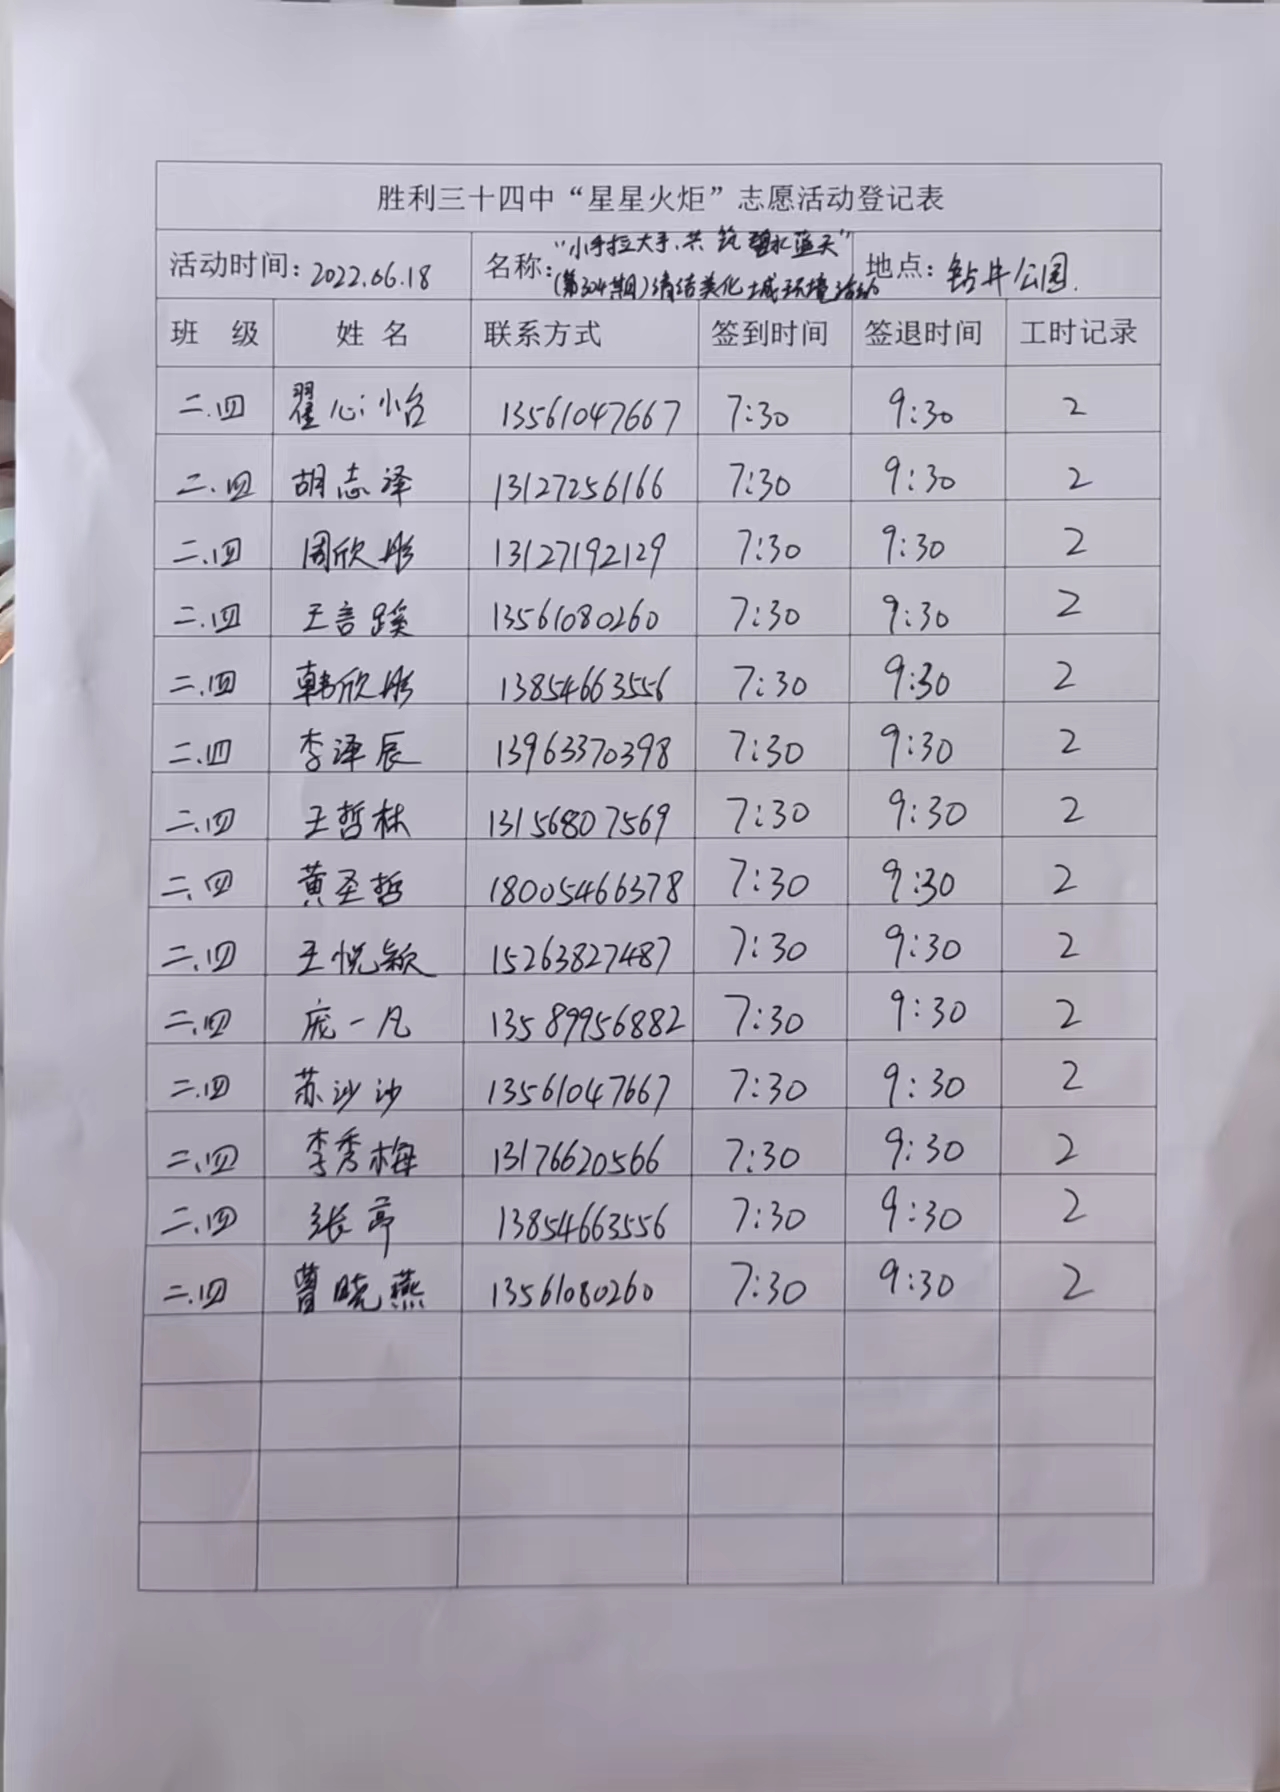 胜利三十四中“星星火炬”志愿活动登记表
活动时间：2022.06.18 名称：“小手拉大手、共筑碧水蓝天”（第304期）清洁美化城环境活动 地点：钻井公园.
班 级 姓 名 联系方式 签到时间 签退时间 工时记录
二.四 翟心怡 13561047667 7:30 9:30 2
二.四 胡志泽 13127256166 7:30 9:30 2
二.四 周欣彤 13127192129 7:30 9:30 2
二.四 王言蹊 13561080260 7:30 9:30 2
二.四 韩欣彤 13854663556 7:30 9:30 2
二.四 李泽辰 13963370398 7:30 9:30 2
二.四 王哲林 13156807569 7:30 9:30 2
二.四 黄圣哲 18005466378 7:30 9:30 2
二.四 王悦颖 15263827487 7:30 9:30 2
二.四 庞一凡 13589956882 7:30 9:30 2
二.四 苏沙沙 13561047667 7:30 9:30 2
二.四 李秀梅 13176620566 7:30 9:30 2
二.四 张亭 13854663556 7:30 9:30 2
二.四 曹晓燕 13561080260 7:30 9:30 2